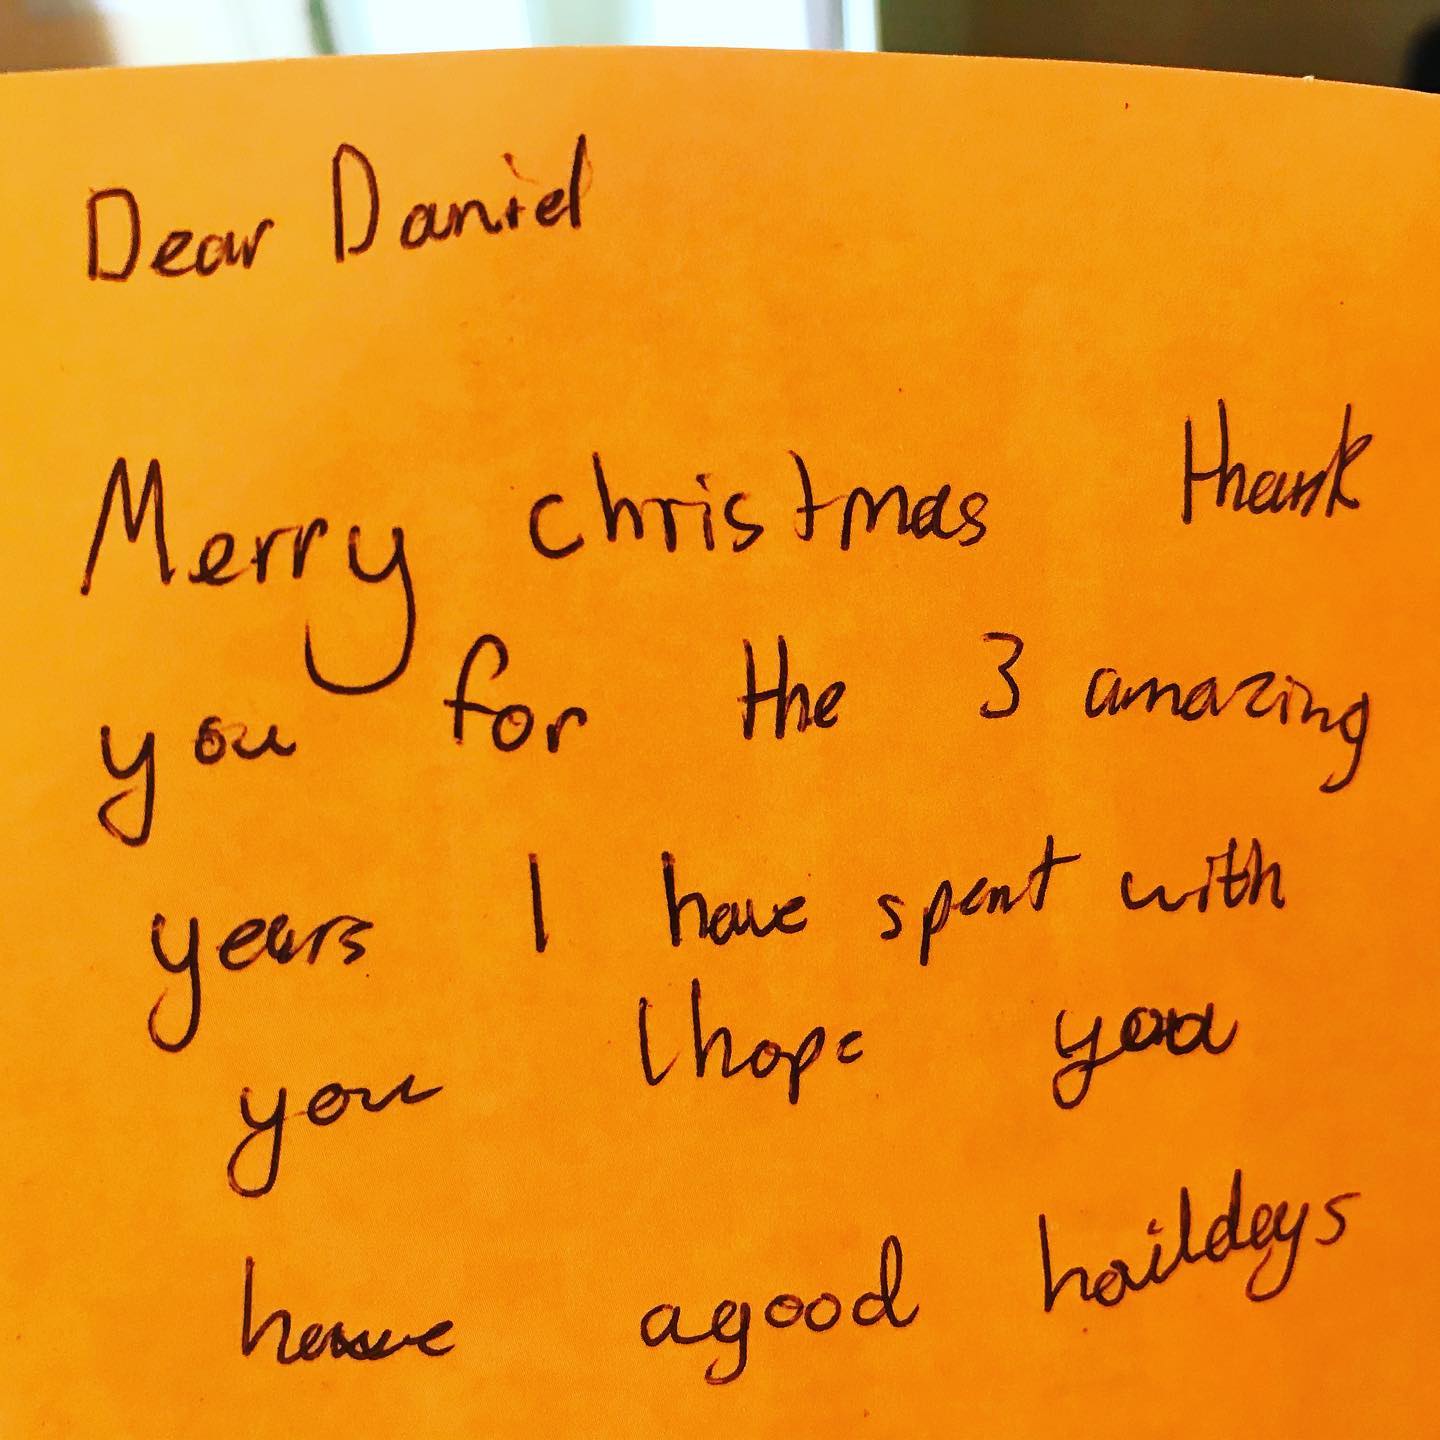 Dear Daniel
Merry christmas thank
you for the 3 amazing
years I have spent with
you I hope you
have a good haildeys